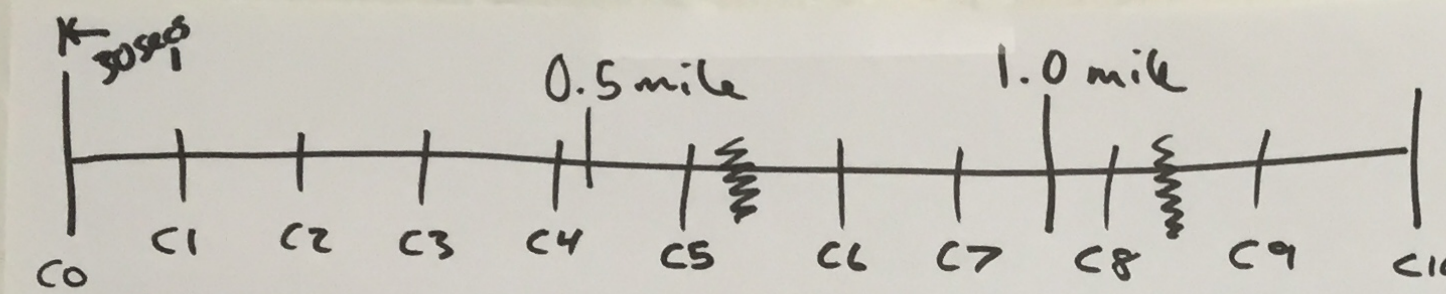 30 secs
0.5 mile
1.0 mile
C0 C1 C2 C3 C4 C5 C6 C7 C8 C9